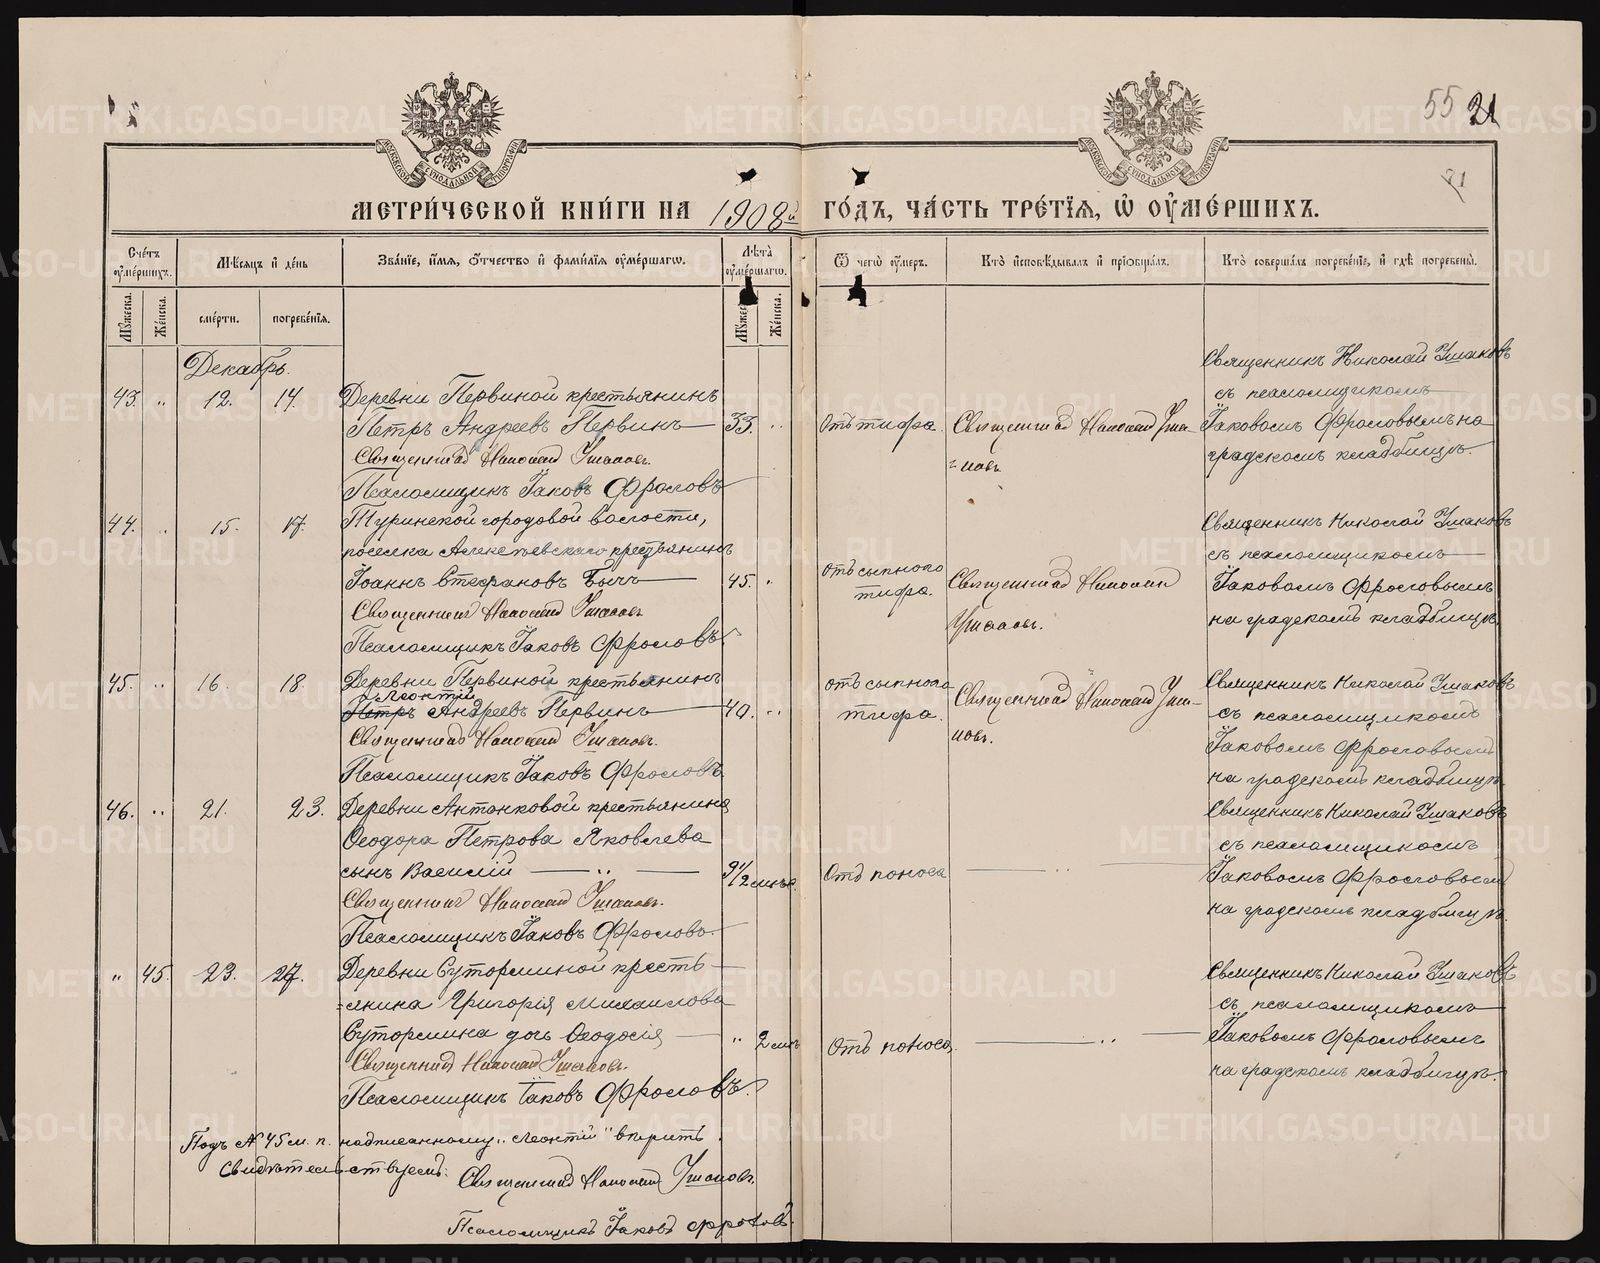 55 21
71
МОСКОВСКОЙ СѴНОДАЛЬНОЙ ТИПОГРАФІИ
МОСКОВСКОЙ СѴНОДАЛЬНОЙ ТИПОГРАФІИ
МЕТРИ́ЧЕСКОЙ КНИ́ГИ НА 1908й ГО́ДЪ, ЧА́СТЬ ТРЕ́ТІЯ, Ѡ ОУМЕ́РШИХЪ.
Сче́тъ оуме́ршихъ.
Мѣсяцъ и день
Зва́ніе, и́мя, о́тчество и фами́лія оуме́ршагѡ.
Лѣта̀ оуме́ршагѡ.
Ѿ чегѡ̀ оу́меръ.
Кто̀ исповѣ́дывалъ и приѡбща́лъ.
Кто̀ соверша́лъ погребе́ніе, и гдѣ̀ погребены́.
Му́жеска. Же́нска. сме́рти. погребе́нія. Му́жеск. Же́нска.
Декабрь.
43. „ 12. 14. Деревни Первиной крестьянинъ
Петръ Андреевъ Первинъ 33. „
Священникъ Николай Ушаковъ.
Псаломщикъ Іаковъ Фроловъ
Отъ тифа.
Священникъ Николай Уша-
=ковъ.
Священникъ Николай Ушаковъ
съ псаломщикомъ
Іаковомъ Фроловымъ на
градскомъ кладбищѣ.
44. „ 15. 17. Туринской городовой волости,
поселка Алексѣевскаго крестьянинъ
Іоаннъ Стефановъ Бычъ 45. „
Священникъ Николай Ушаковъ
Псаломщикъ Іаковъ Фроловъ.
отъ сыпного
тифа.
Священникъ Николай
Ушаковъ.
Священникъ Николай Ушаковъ
съ псаломщикомъ
Іаковомъ Фроловымъ
на градскомъ кладбищѣ.
45. „ 16. 18. Деревни Первиной крестьянинъ
Леонтій
Петръ Андреевъ Первинъ 40. „
Священникъ Николай Ушаковъ.
Псаломщикъ Іаковъ Фроловъ
отъ сыпного
тифа.
Священникъ Николай Уша-
ковъ.
Священникъ Николай Ушаковъ
съ псаломщикомъ
Іаковомъ Фроловымъ
на градскомъ кладбищѣ
46. „ 21. 23. Деревни Антонковой крестьянина
Ѳеодора Петрова Яковлева
сынъ Василій „ 9 1/2 мѣс.
Священникъ Николай Ушаковъ.
Псаломщикъ Іаковъ Фроловъ.
Отъ поноса „
Священникъ Николай Ушаковъ
съ псаломщикомъ
Іаковомъ Фроловымъ
на градскомъ кладбищѣ.
„ 45. 23. 27. Деревни Суторминой кресть-
=янина Григорія Михаилова
Сутормина дочь Ѳеодосія „ 2 мѣс
Священникъ Николай Ушаковъ.
Псаломщикъ Іаковъ Фроловъ.
Отъ поноса. „
Священникъ Николай Ушаковъ
съ псаломщикомъ
Іаковомъ Фроловымъ
на градскомъ кладбищѣ.
Подъ № 45 м. п. надписанному „Леонтій" вѣрить.
Свидѣтельствуемъ: Священникъ Николай Ушаковъ.
Псаломщикъ Іаковъ Фроловъ.
METRIKI.GASO-URAL.RU